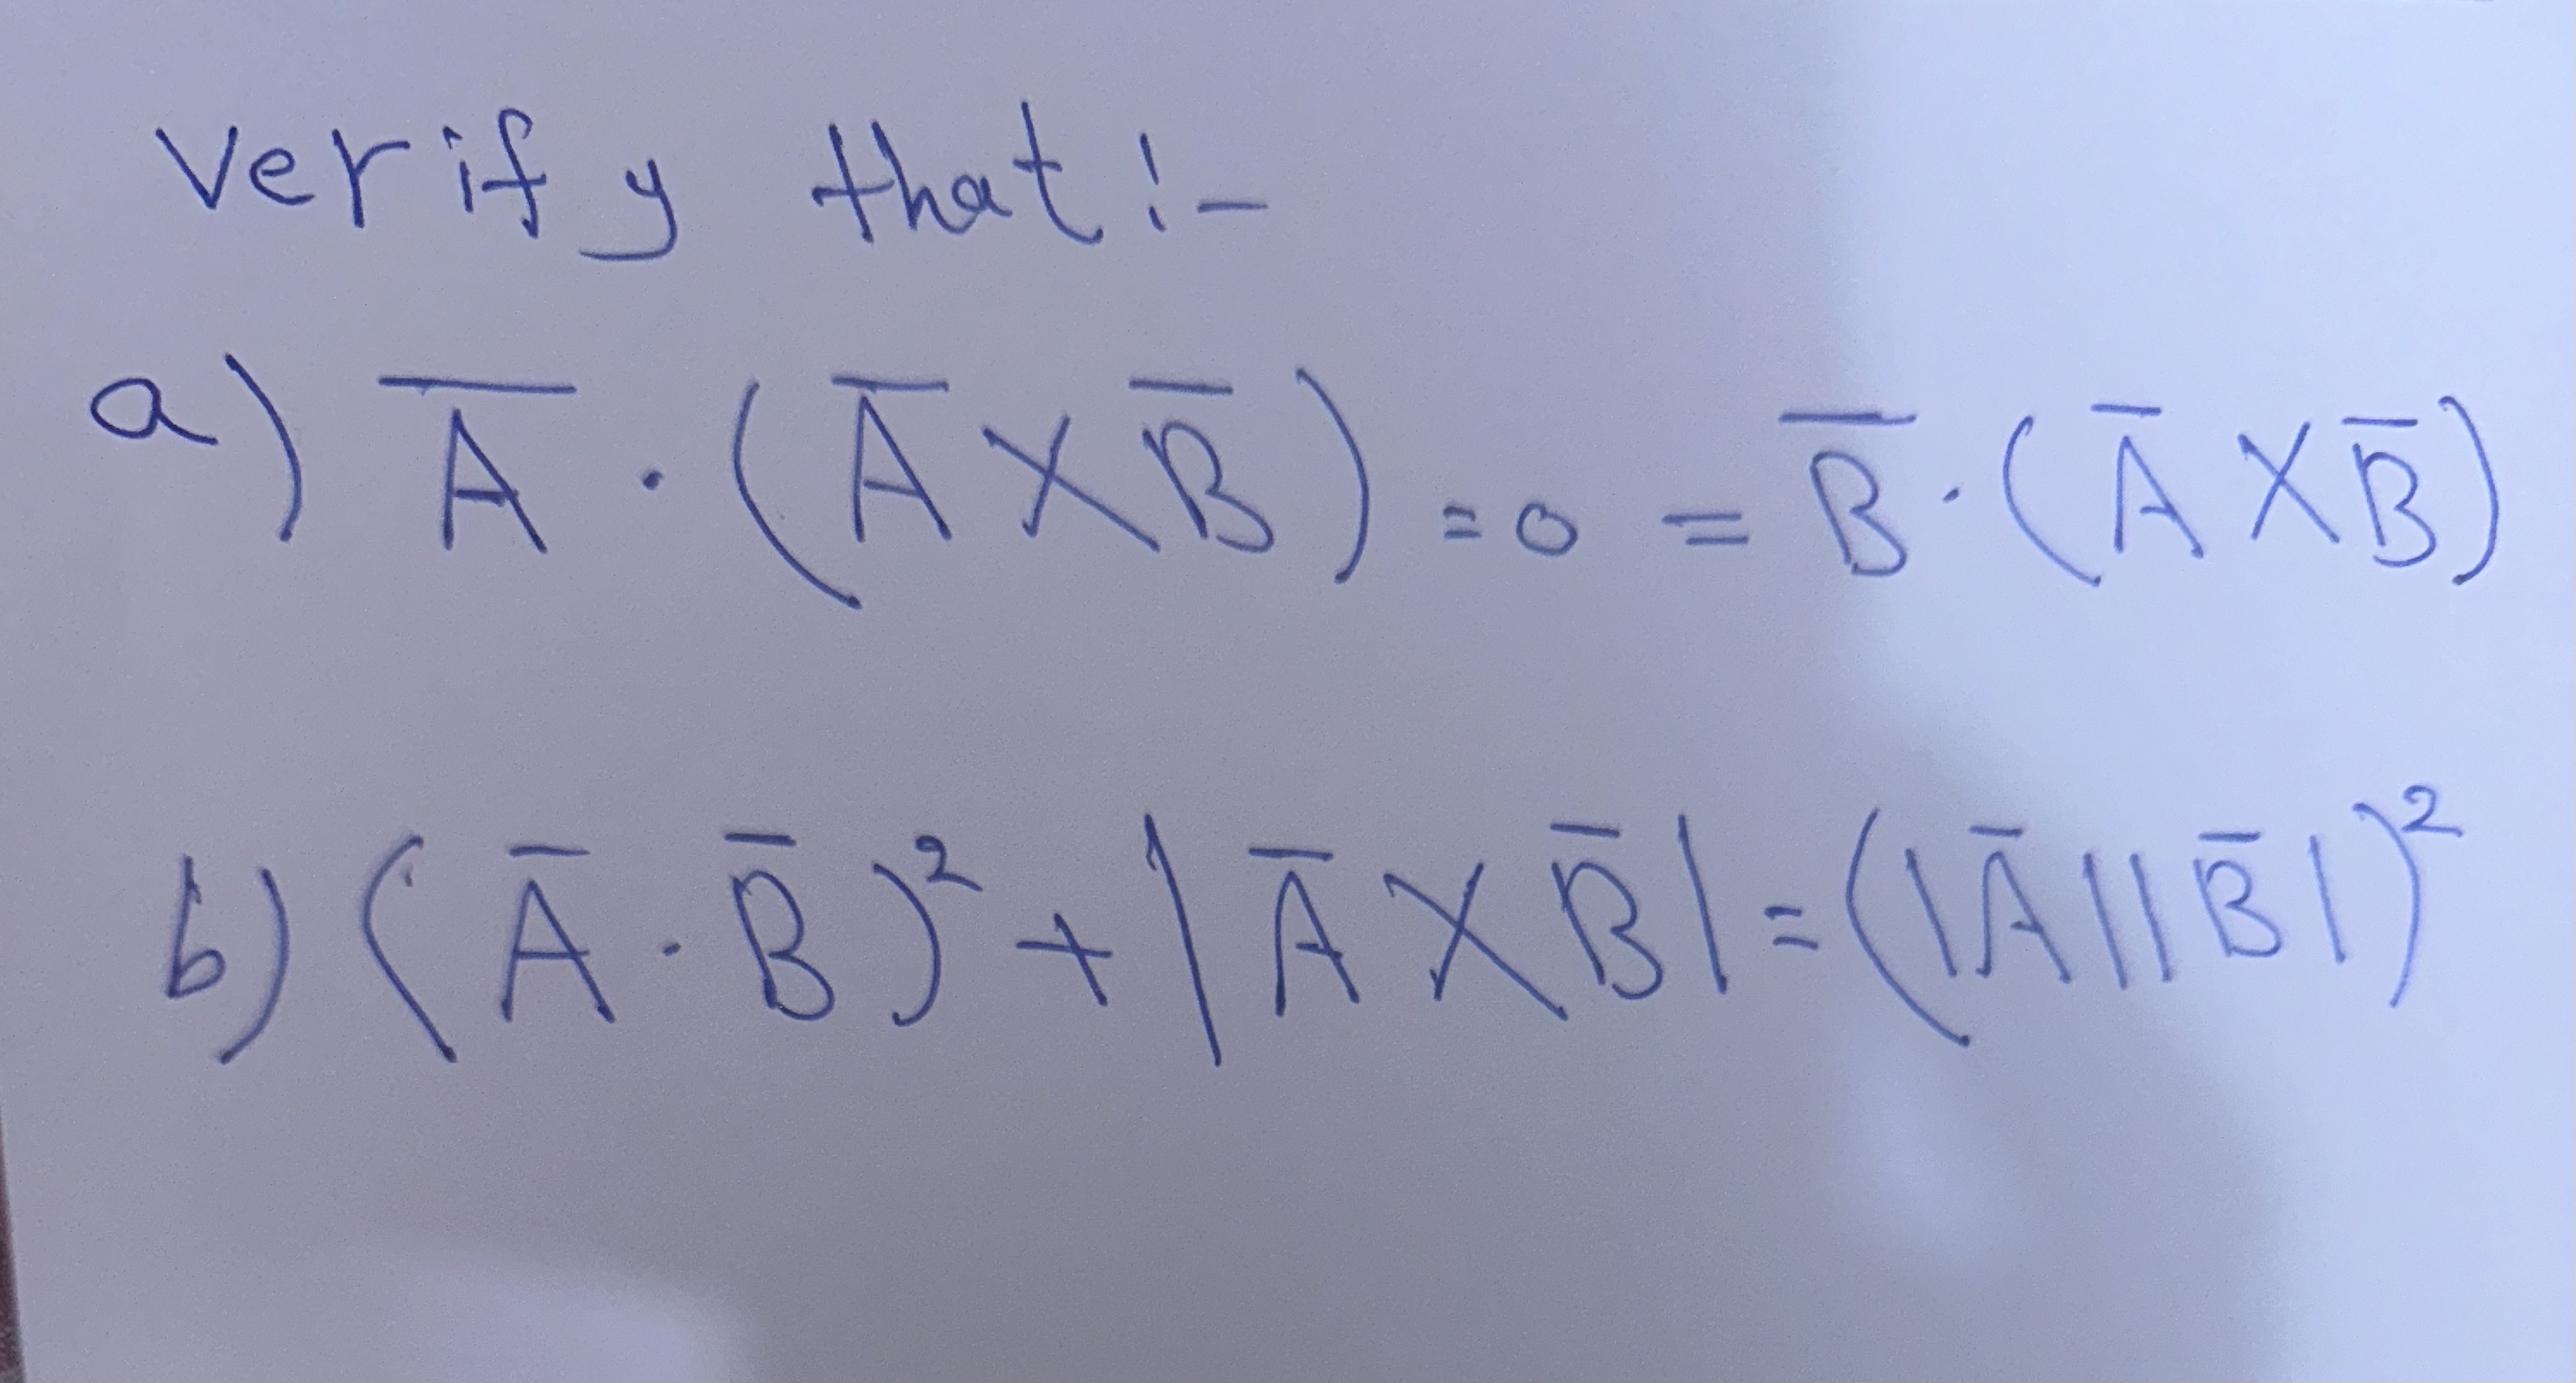 Verify that:-
a) A̅ · (A̅ × B̅) = 0 = B̅ · (A̅ × B̅)
b) (A̅ · B̅)² + |A̅ × B̅| = (|A̅||B̅|)²